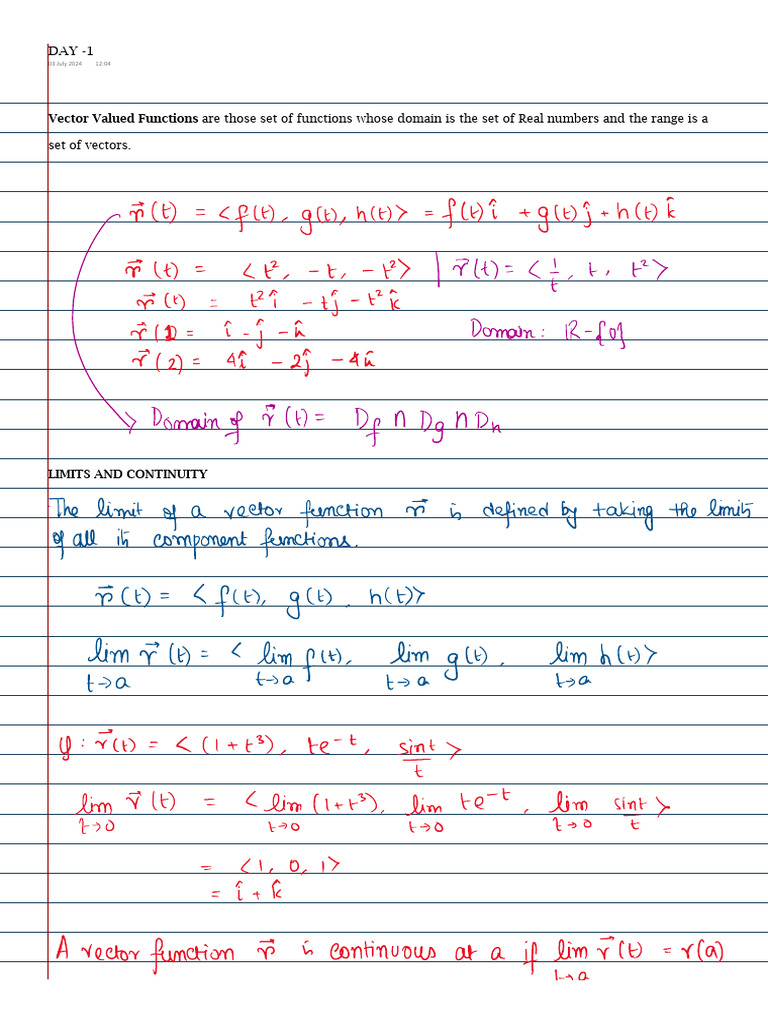 DAY -1
03 July 2024 12:04
Vector Valued Functions are those set of functions whose domain is the set of Real numbers and the range is a
set of vectors.
r⃗(t) = <f(t), g(t), h(t)> = f(t)î + g(t)ĵ + h(t)k̂
r⃗(t) = <t², -t, -t²> | r⃗(t) = <1/t, t, t²>
r⃗(t) = t²î - tĵ - t²k̂
r⃗(1) = î - ĵ - k̂ Domain: R-{0}
r⃗(2) = 4î - 2ĵ - 4k̂
Domain of r⃗(t) = D_f ∩ D_g ∩ D_h
LIMITS AND CONTINUITY
The limit of a vector function r⃗ is defined by taking the limits
of all its component functions.
r⃗(t) = <f(t), g(t), h(t)>
lim r⃗(t) = < lim f(t), lim g(t), lim h(t)>
t→a t→a t→a t→a
r⃗(t) = <(1+t³), te^-t, sint/t>
lim r⃗(t) = <lim (1+t³), lim te^-t, lim sint/t>
t→0 t→0 t→0 t→0
= <1, 0, 1>
= î + k̂
A vector function r⃗ is continuous at a if lim r⃗(t) = r(a)
t→a